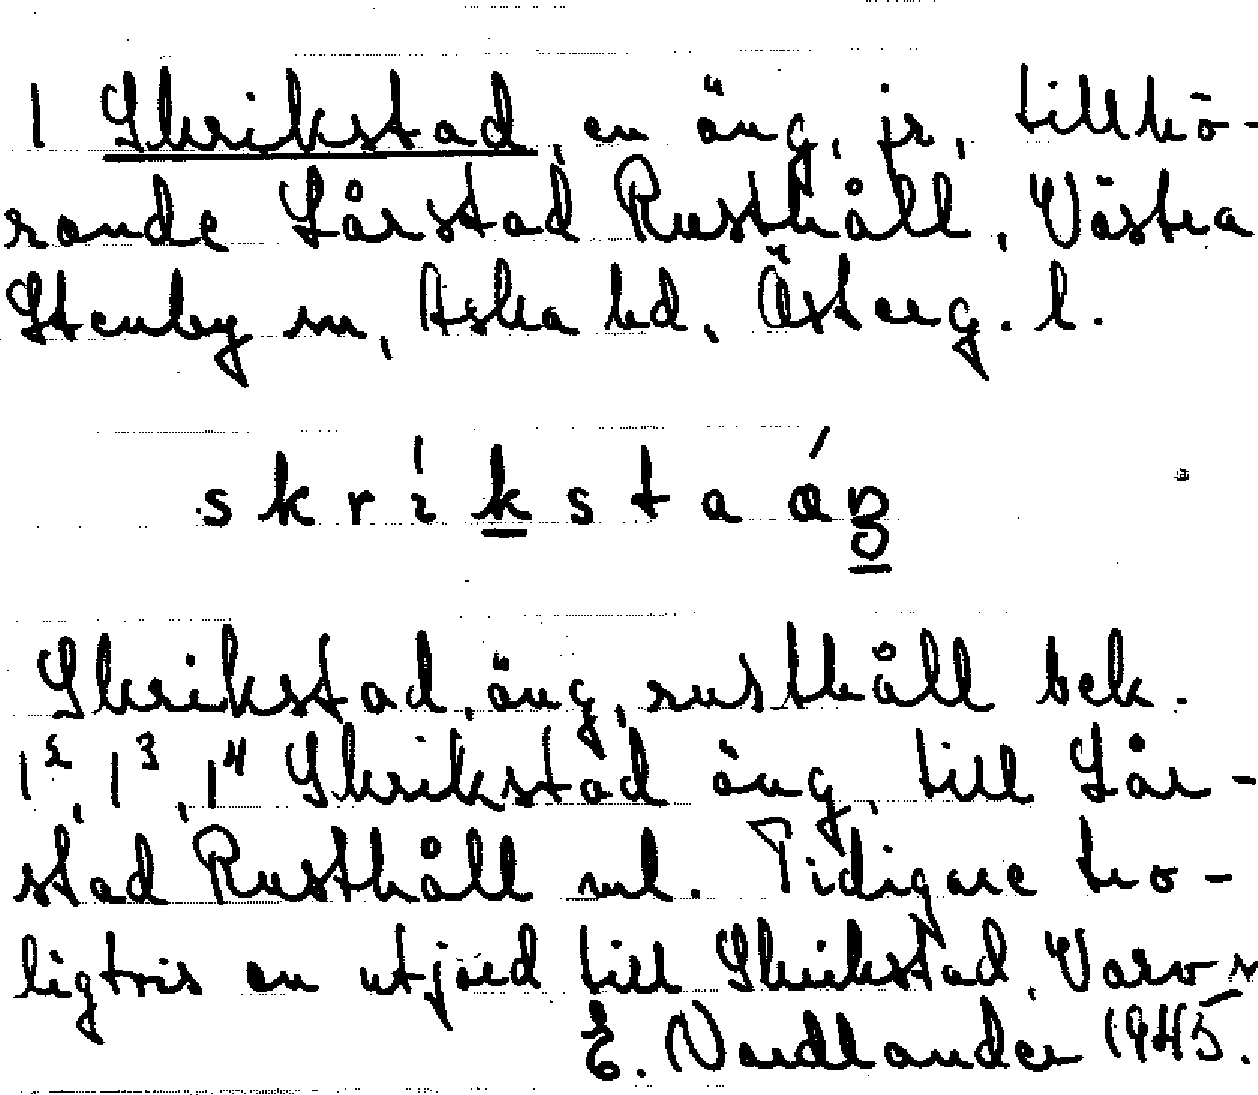 1 Skrikstad, en äng, jr, tillhö-
rande Lårstad Rusthåll, Västra
Stenby sn, Aska hd, Österg. l.
skrìkstaáz
Skrikstad, äng, rusthåll bek.
1², 1³, 1⁴ Skrikstad äng, till Lår-
stad Rusthåll ml. Tidigare tro-
ligtvis en utjord till Skrikstad, Varv sn
E. Nordlander 1945.